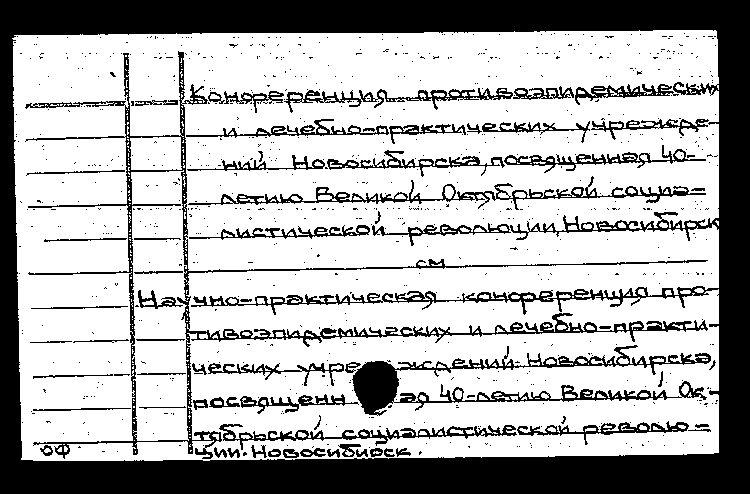 Конференция противоэпидемических
и лечебно-практических учрежде-
ний Новосибирска, посвященная 40-
летию Великой Октябрьской социа-
листической революции, Новосибирск
см
Научно-практическая конференция про-
тивоэпидемических и лечебно-практи-
ческих учреждений Новосибирска,
посвященн ая 40-летию Великой Ок-
тябрьской социалистической револю-
ции. Новосибирск.
ОФ